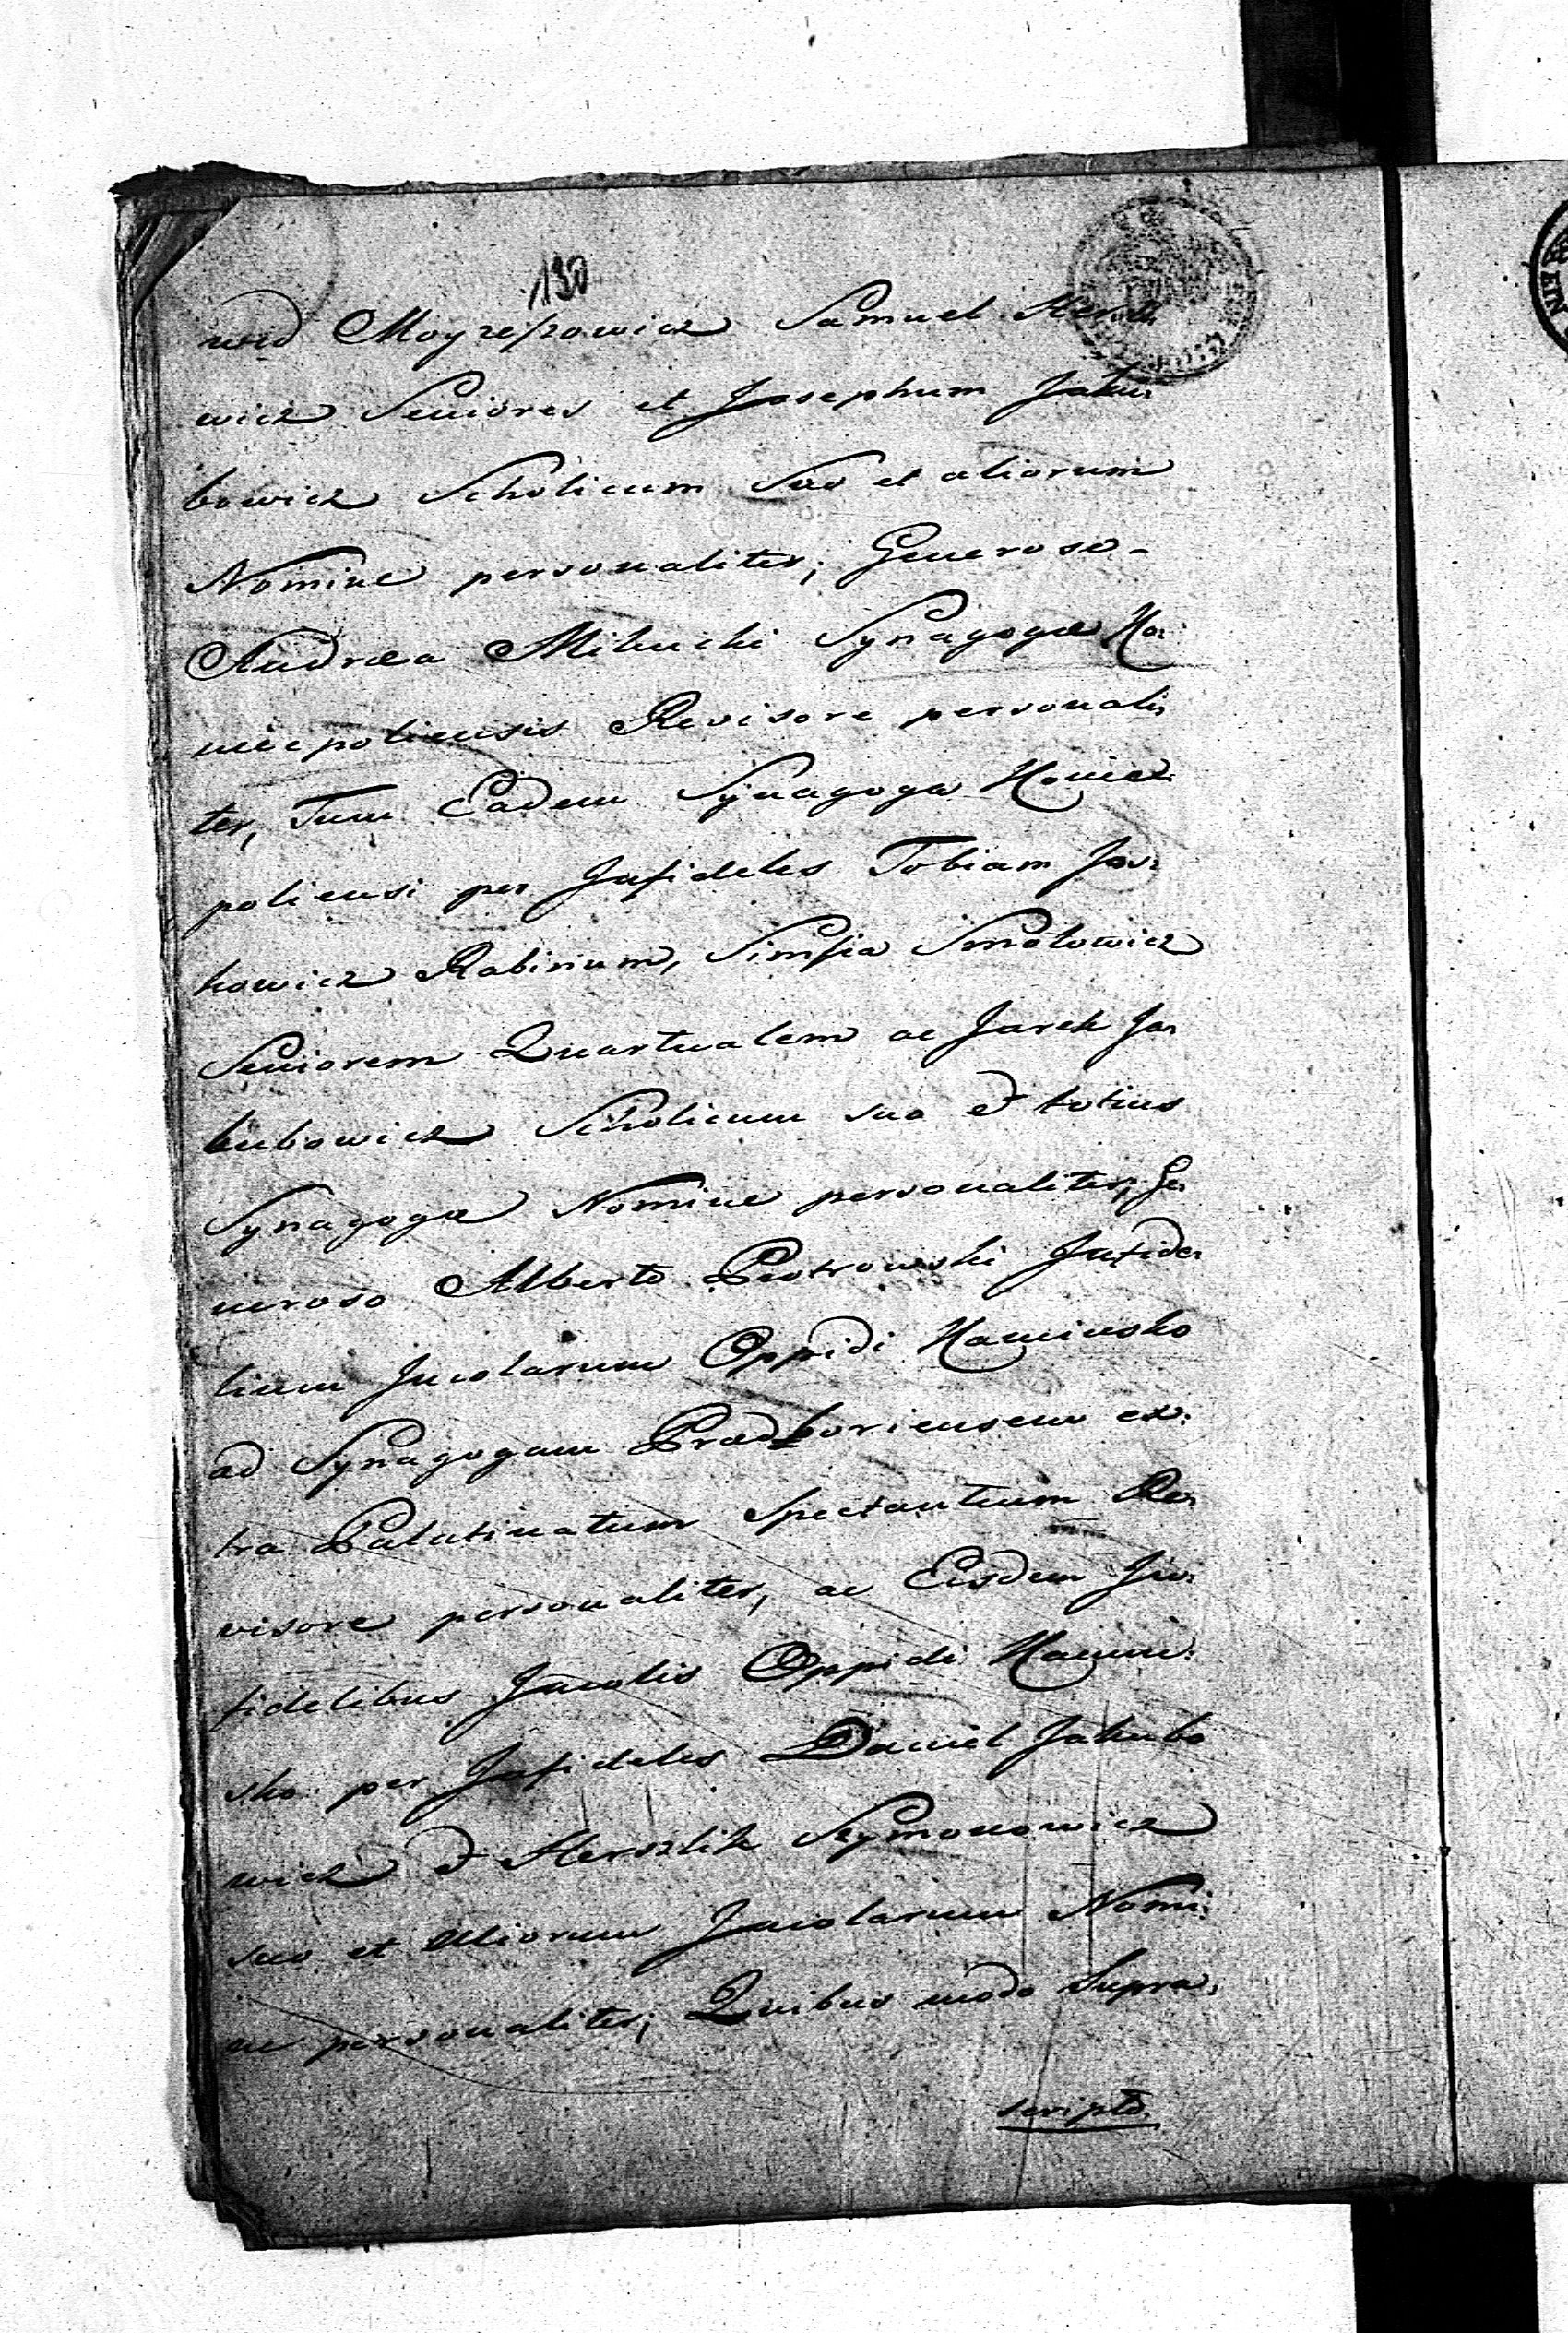 130
wid Moyzeszowicz Samuel Hersz
wicz Seniores et Josephum Jaku
bowicz Scholicum Suo et aliorum
Nomine personaliter; Generoso-
Andræa Milucki Synagogæ Ko:
niecpoliensis Revisore personali
ter, Tum Eadem Synagoga Koniec:
poliensi per Infideles Tobiam Jos:
kowicz Rabinum, Simsia Smolowicz
Seniorem Quartualem ac Jarek Ja
kubowicz Scholicum suo et totius
Synagogæ Nomine personaliter, Ge
neroso Alberto Piotrowski Infide
lium Incolarum Oppidi Kaminsko
ad Synagogam Przedboriensem ex:
tra Palatinatum Spectantium Re
visore personaliter, ac Eisdem In:
fidelibus Incolis Oppidi Kamin:
sko per Infideles Daniel Jakubo
wicz et Herszlik Szymonowicz
suo et Aliorum Incolarum Nomi:
ne personaliter; Quibus modo Supra:
scripto
EIN